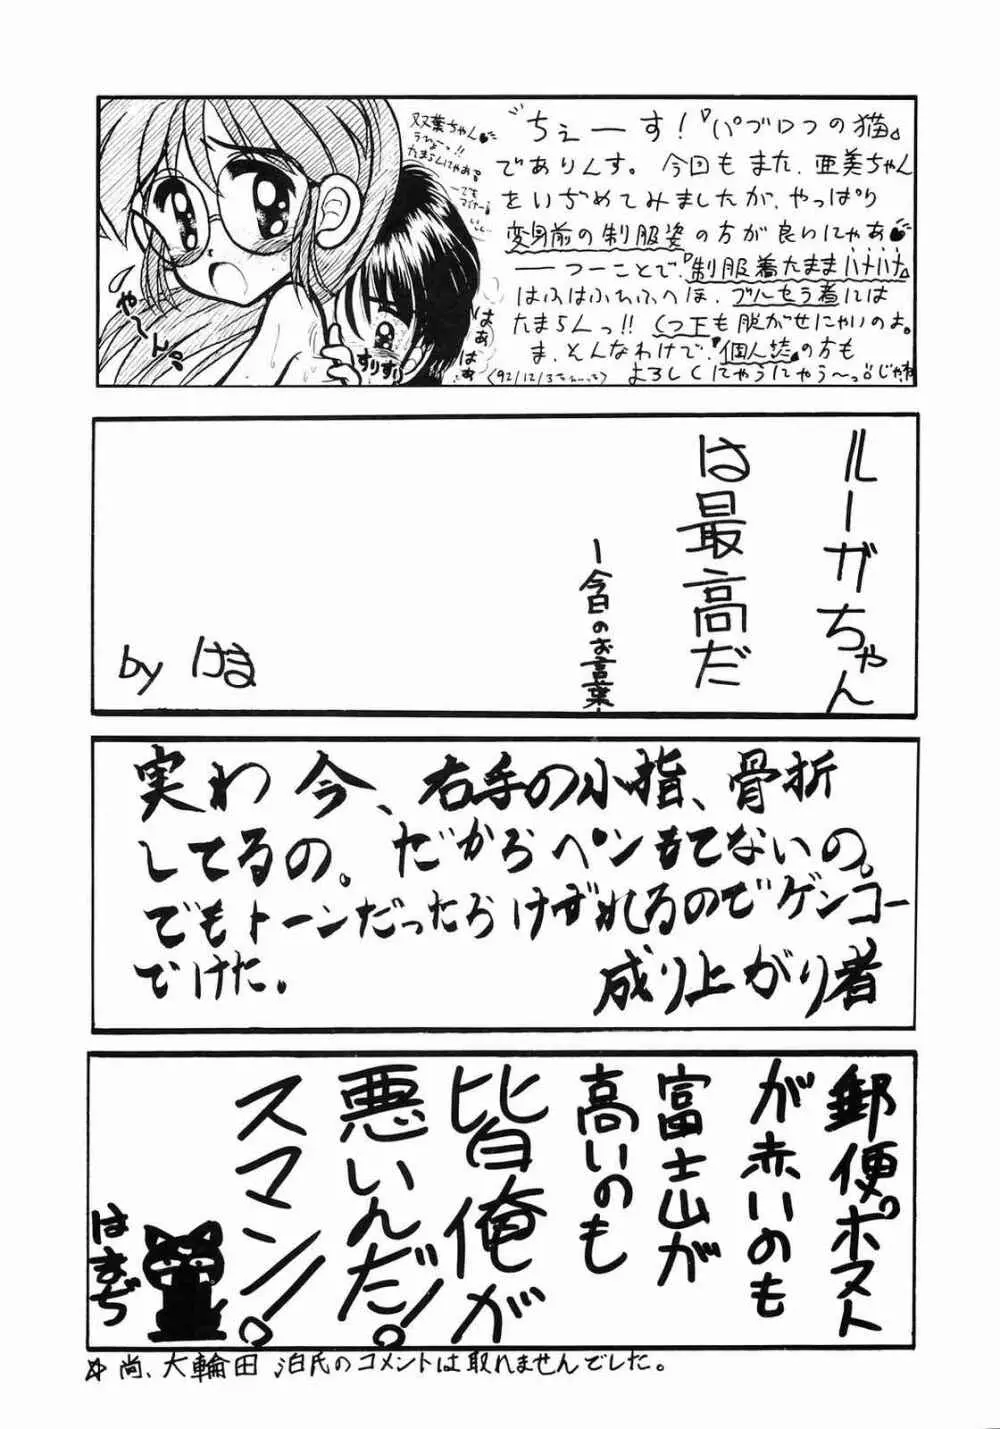 〝ちぇーす！『パブロフの猫』
でありんす。今回もまた、亜美ちゃん
をいぢめてみましたが、やっぱり
変身前の制服姿の方が良いにゃあ
——つーことで、『制服着たままハナハナ』
はふはふれふへほ、ブルセラ着には
たまらんっ!!くつ下も脱がせにゃいのよ。
ま、そんなわけで、『個人誌』の方も
よろしくにゃうにゃう〜っ。じゃね
双葉ちゃん
たまらんにゃあ
や〜ん。
すりすり
はあ
はあ
ルーガちゃん
は最高だ
ー今日のお言葉ー
by けま
実わ今、右手の小指、骨折
してるの。だからペンもてないの。
でもトーンだったらけずれるのでゲンコー
でけた。
成り上がり者
郵便ポスト
が赤いのも
富士山が
高いのも
皆俺が
悪いんだ！
スマン！
はまぢ
☆尚、大輪田 泊氏のコメントは取れませんでした。